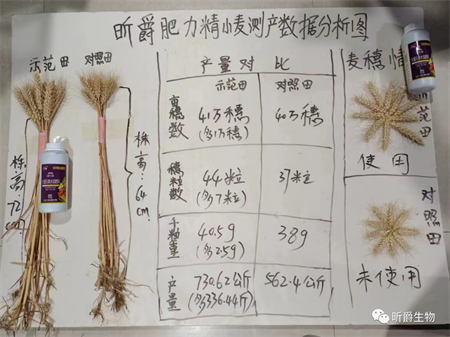 昕爵肥力精小麦测产数据分析图
示范田 对照田
株高:72cm
株高:64cm
产量对比
示范田 对照田
亩穗数 41万穗 40万穗
(多1万穗)
穗粒数 44粒 37粒
(多7粒)
千粒重 40.5g 38g
(多2.5g)
产量 730.62公斤 562.4公斤
(多336.44斤)
麦穗情
范田
使用
对照田
未使用
昕爵生物